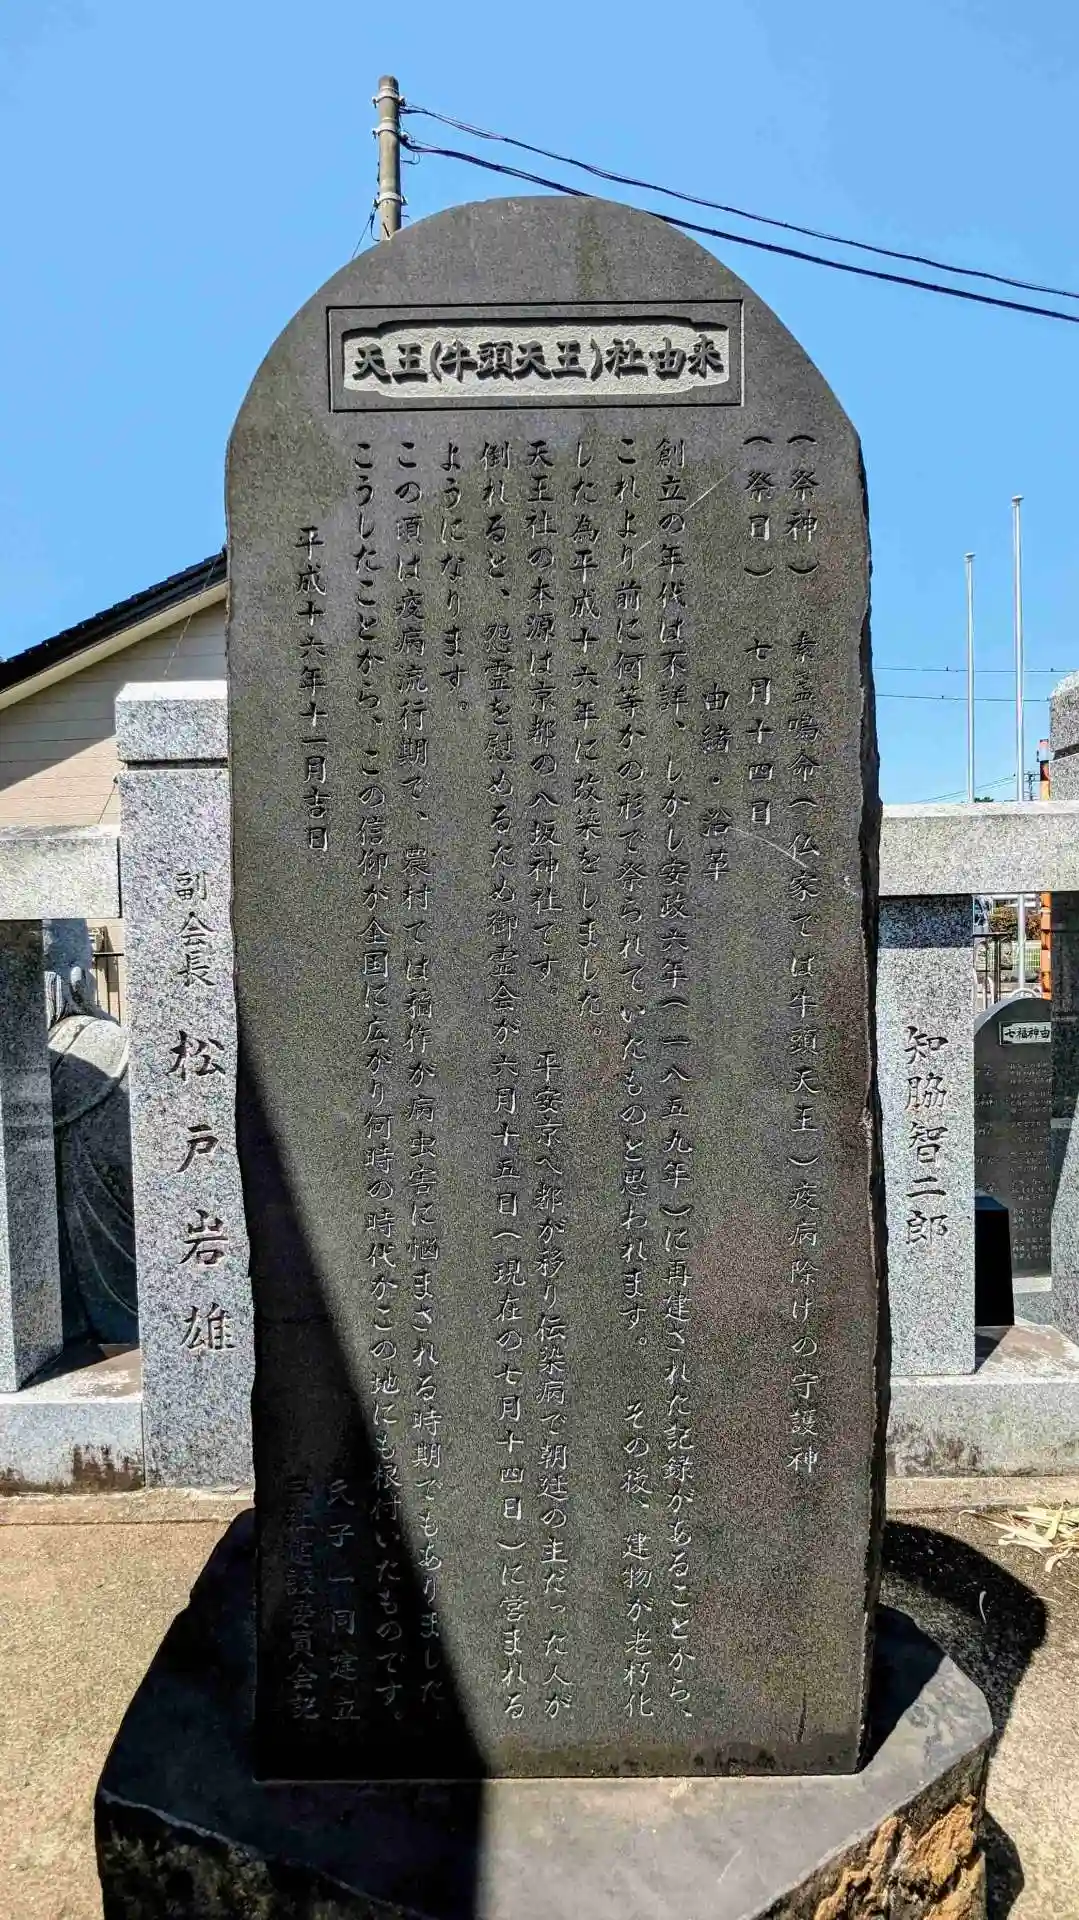 天王(牛頭天王)社由来
(祭神) 素盞鳴命(仏家では牛頭天王)疫病除けの守護神
(祭日) 七月十四日
由緒・沿革
創立の年代は不詳、しかし安政六年(一八五九年)に再建された記録があることから、
これより前に何等かの形で祭られていたものと思われます。その後、建物が老朽化
した為平成十六年に改築をしました。
天王社の本源は京都の八坂神社です。 平安京へ都が移り伝染病で朝廷の主だった人が
倒れると、怨霊を慰めるため御霊会が六月十五日(現在の七月十四日)に営まれる
ようになります。
この頃は疫病流行期で、農村では稲作が病虫害に悩まされる時期でもありました。
こうしたことから、この信仰が全国に広がり何時の時代かこの地にも根付いたものです。
平成十六年十一月吉日
氏子一同建立
三社建設委員会記
副会長 松戸岩雄
知脇智二郎
七福神由